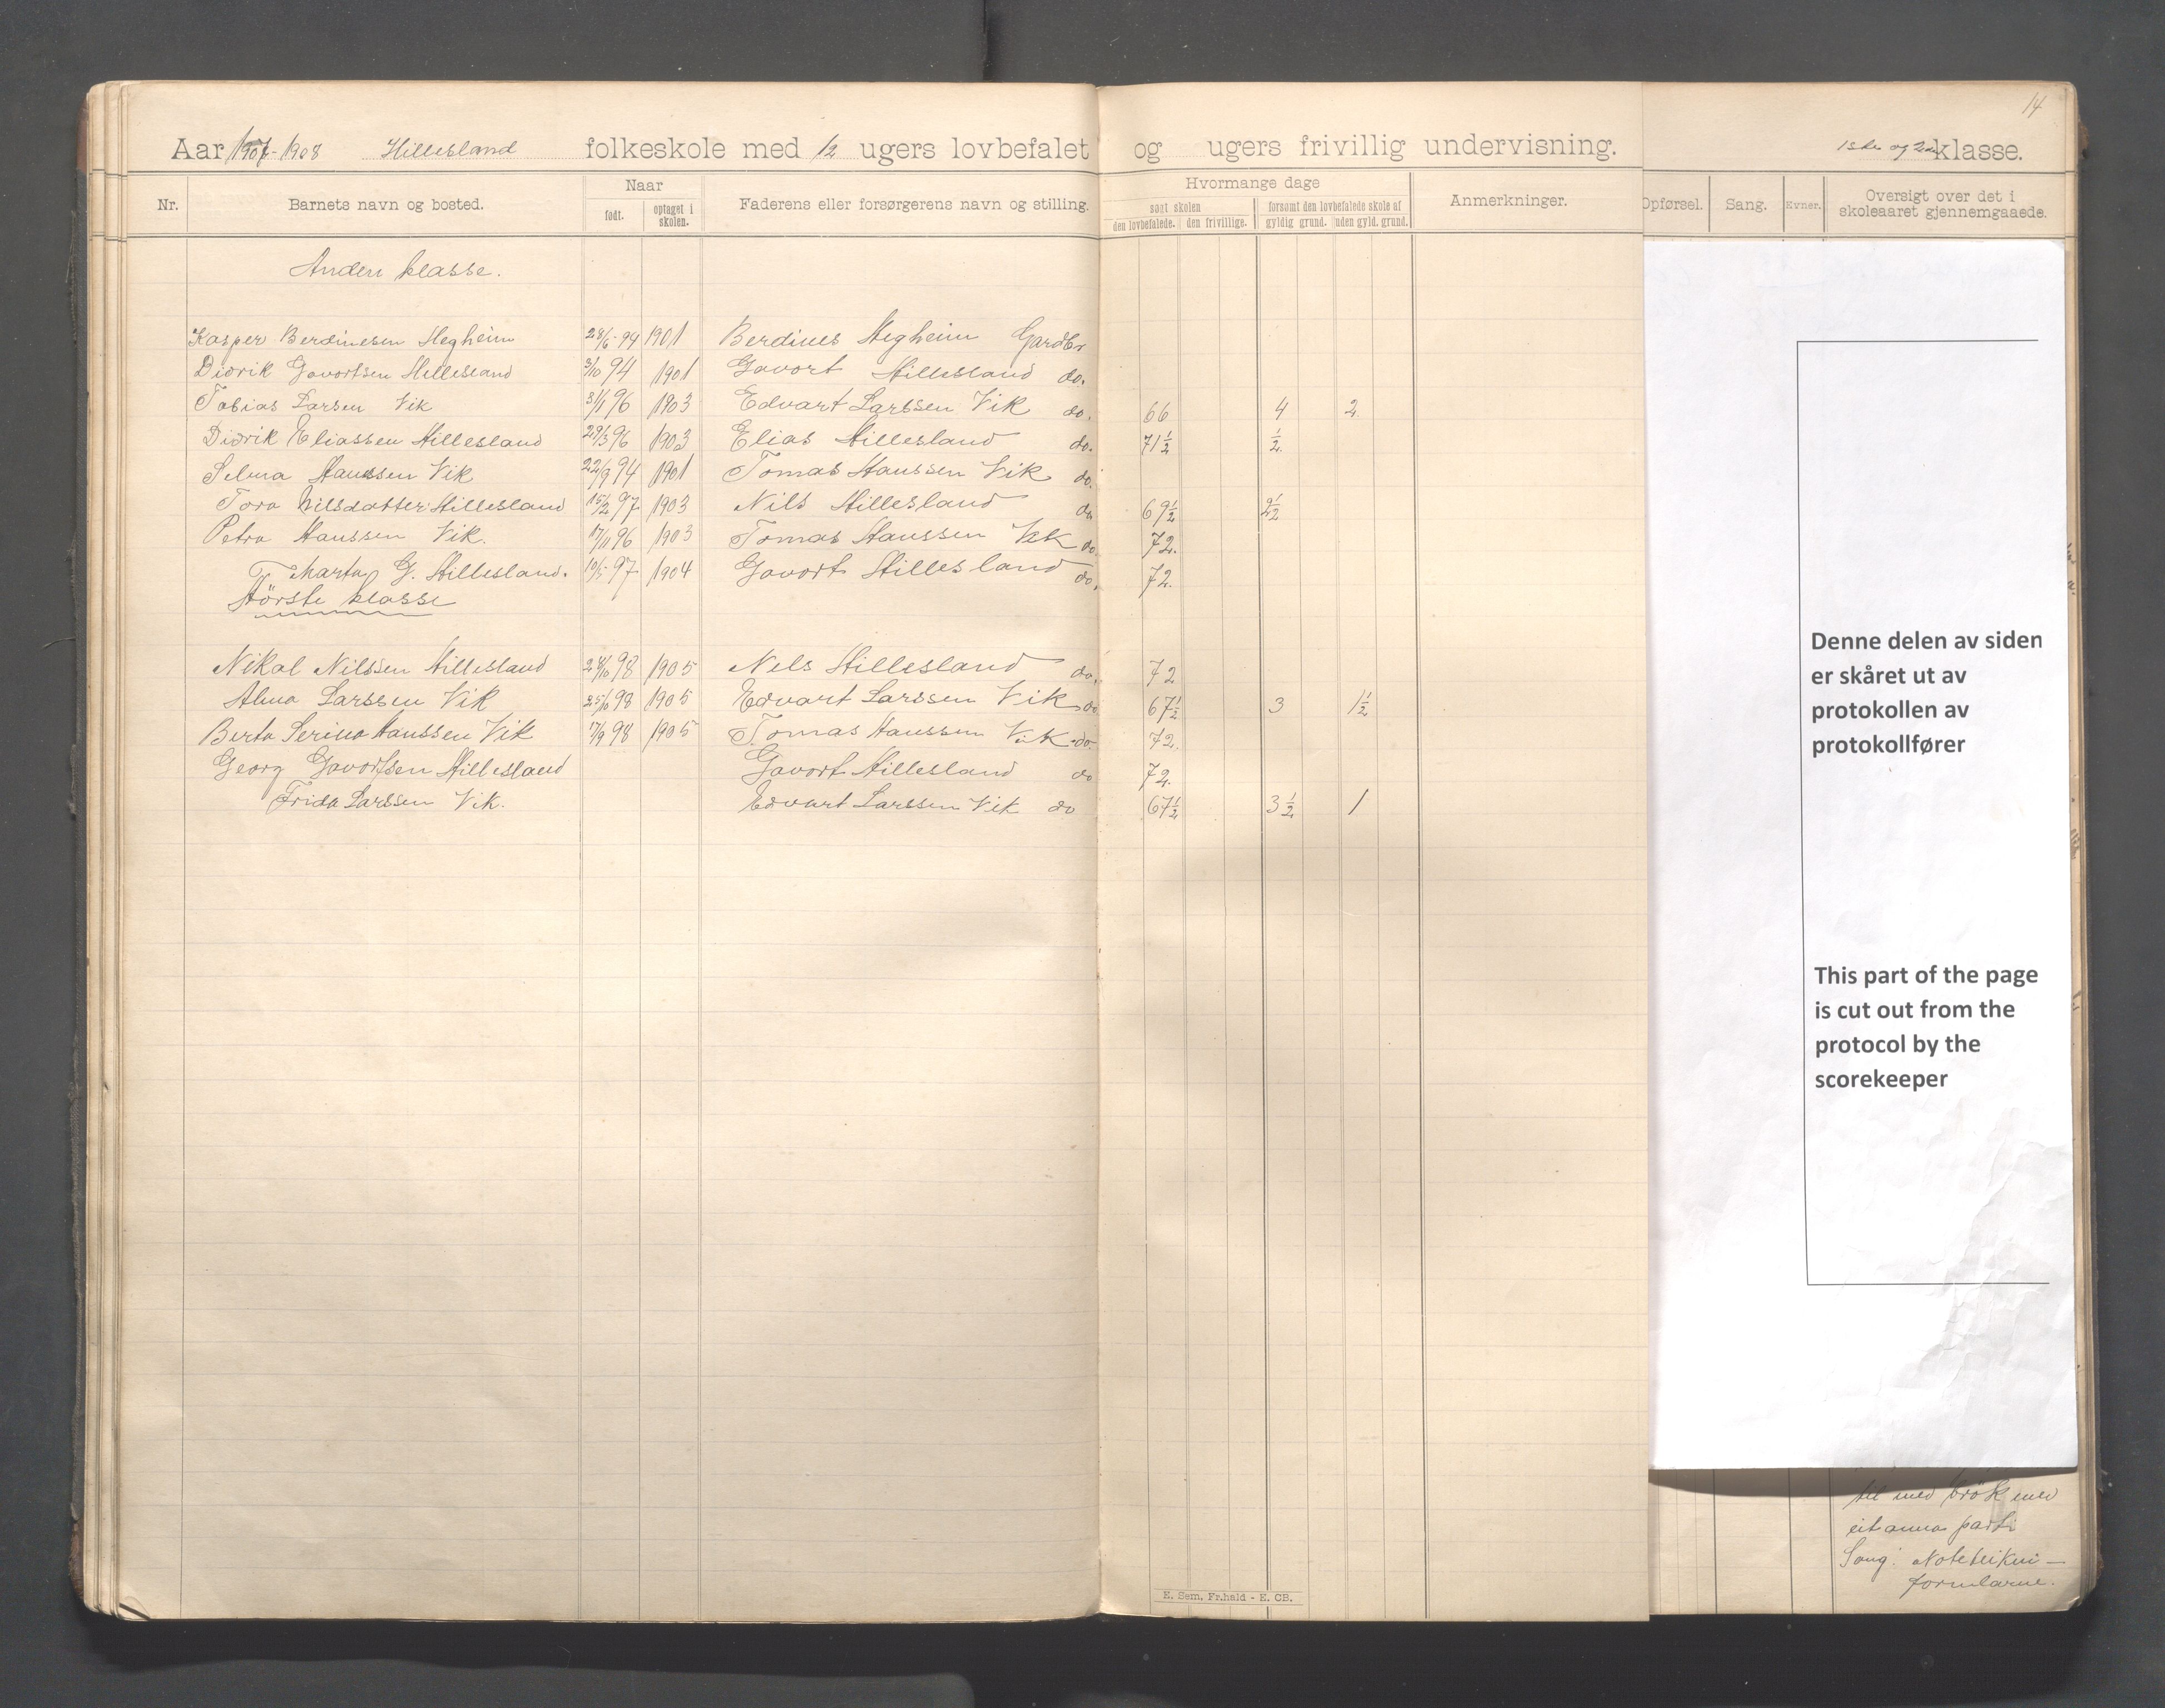 14
Aar 1907-1908 Hillesland folkeskole med 12 ugers lovbefalet og ugers frivillig undervisning. 1ste og 2den klasse.
Nr. Barnets navn og bosted. Naar født. optaget i skolen. Faderens eller forsørgerens navn og stilling. Hvormange dage søgt skolen den lovbefalede. den frivillige. forsømt den lovbefalede skole af gyldig grund. uden gyld. grund. Anmerkninger. Opførsel. Sang. Evner. Oversigt over det i skoleaaret gjennemgaaede.
Anden klasse.
Kasper Berdinesen Hegheim 28/6-94 1901 Berdines Hegheim Gardbr
Didrik Govortsen Hillesland 3/10 94 1901 Govort Hillesland do.
Tobias Larsen Vik 3/1 96 1903 Edvart Larssen Vik do. 66 4 2
Didrik Eliassen Hillesland 29/3 96 1903 Elias Hillesland do. 71½ ½
Selma Hanssen Vik 22/9 94 1901 Tomas Hanssen Vik do.
Tora Nilsdatter Hillesland 15/2 97 1903 Nils Hillesland do 69½ 2½
Petra Hanssen Vik. 17/11 96 1903 Tomas Hanssen Vik do. 72.
Marta G. Hillesland. 10/5-97 1904 Govort Hillesland do. 72.
Förste klasse
Nikal Nilssen Hillesland 28/10 98 1905 Nels Hillesland do. 72
Alma Larssen Vik 25/10 98 1905 Edvart Larssen Vik do 67½ 3 1½
Berta Serina Hanssen Vik 17/9 98 1905 Tomas Hanssen Vik do. 72.
Georg Govortsen Hillesland Govort Hillesland do 72.
Frida Larssen Vik. Edvart Larssen Vik do 67½ 3½ 1
Denne delen av siden
er skåret ut av
protokollen av
protokollfører
This part of the page
is cut out from the
protocol by the
scorekeeper
til med brök med
eit anna parti
Song: Noteteikni-
formlarne.
E. Sem, Fr.hald - E. CB.